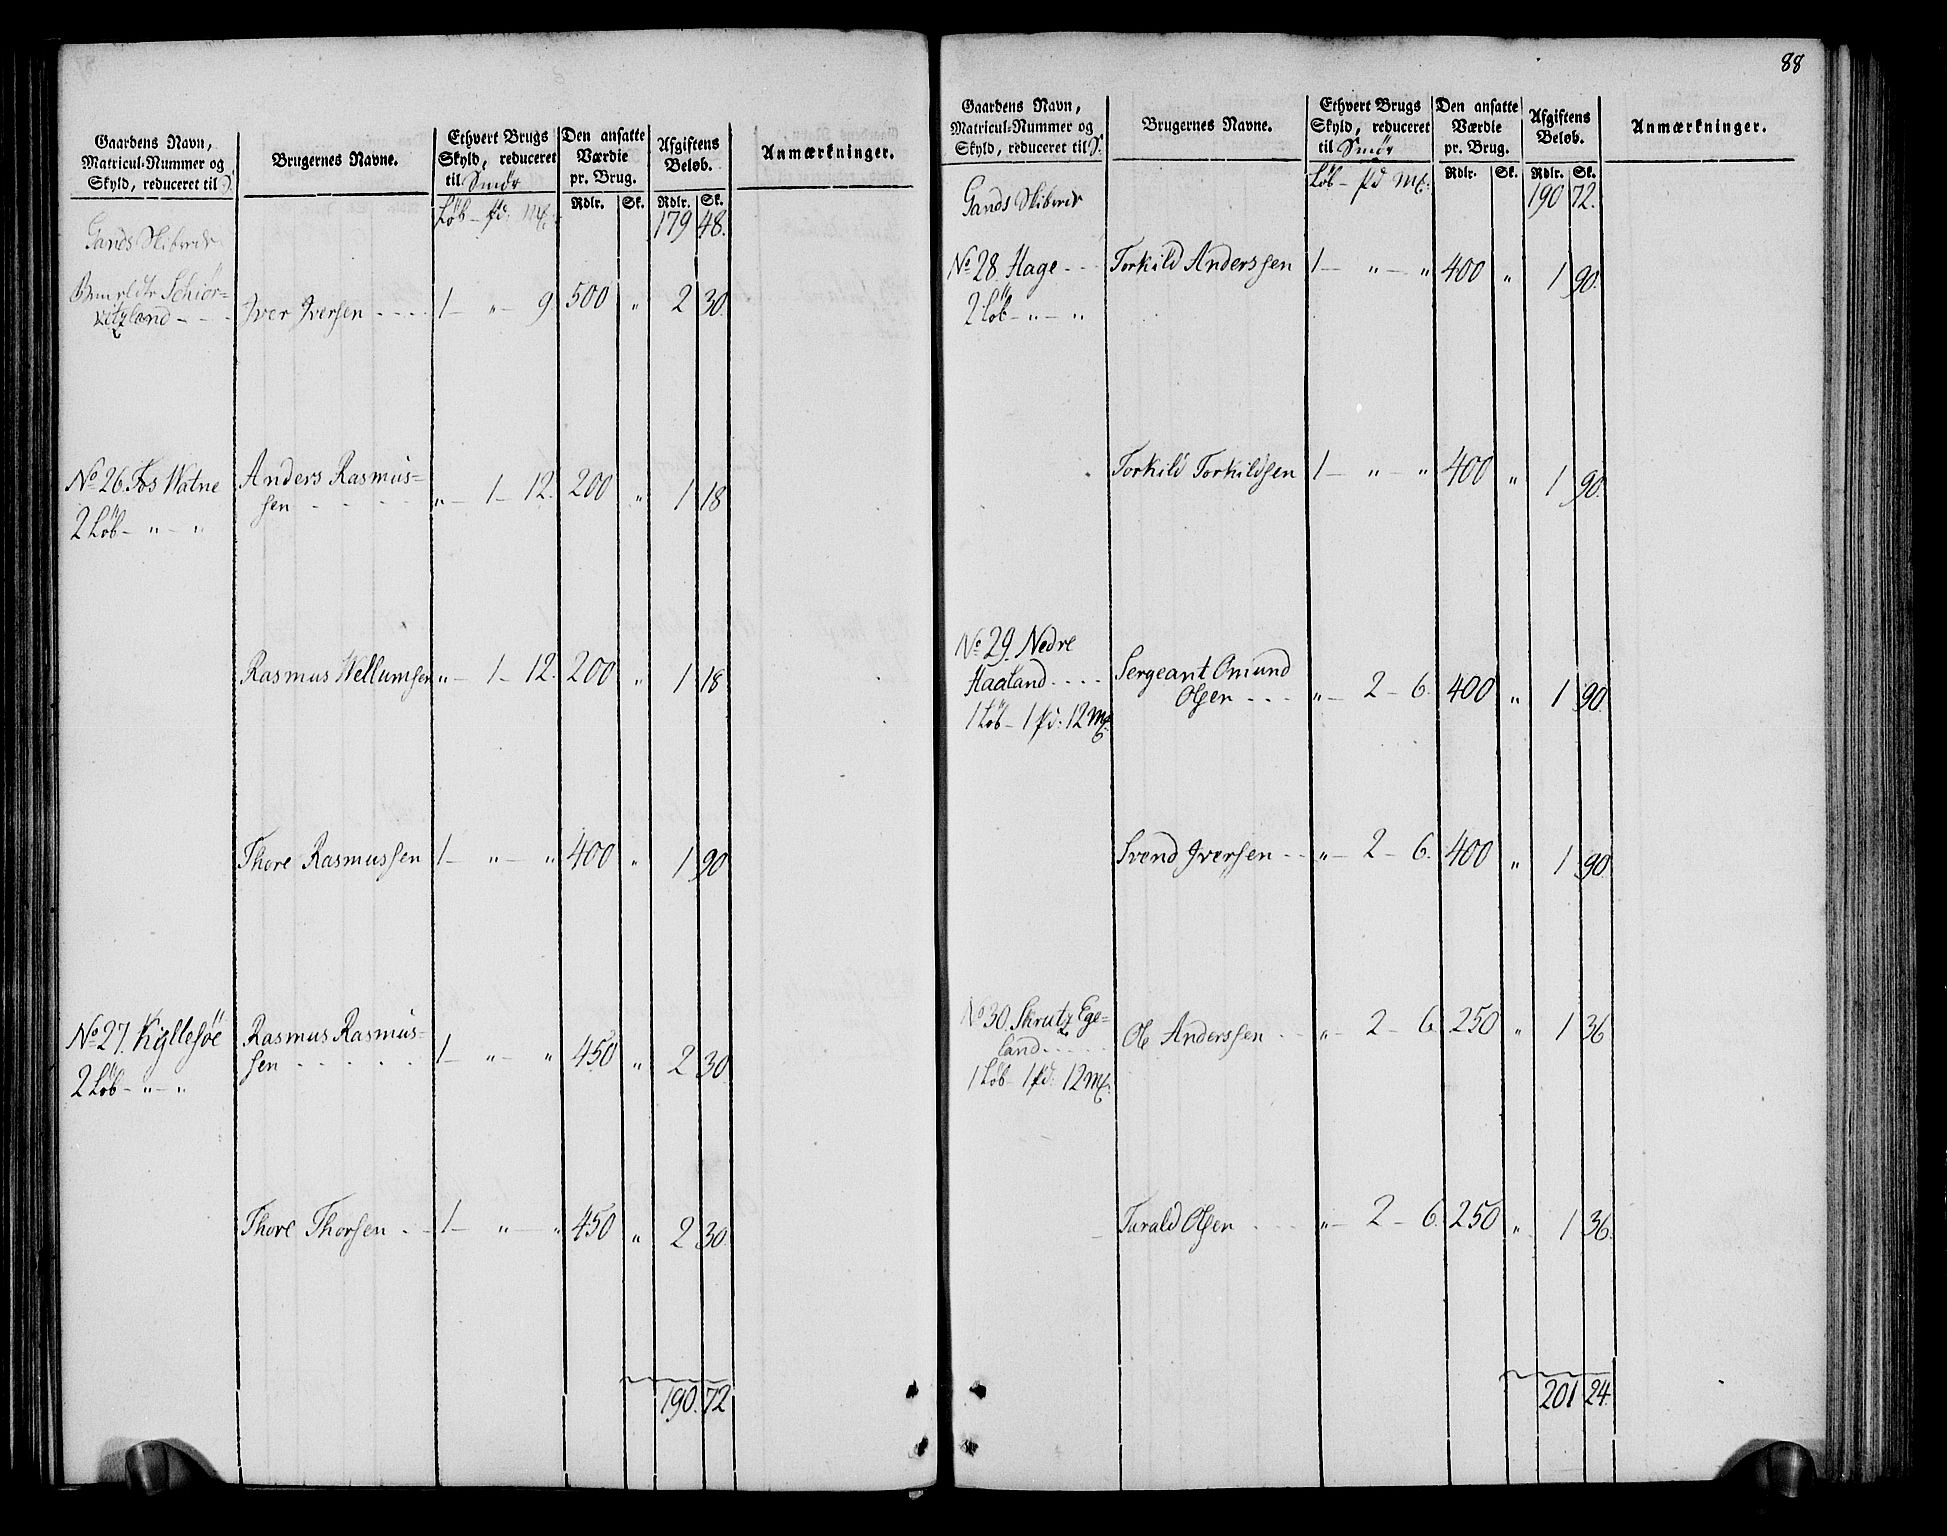 Gaardens Navn,
Matricul-Nummer og
Skyld, reduceret til S.
Brugernes Navne.
Ethvert Brugs
Skyld, reduceret
til Smör
Den ansatte
Værdie
pr. Brug.
Afgiftens
Beløb.
Anmærkninger.
Løb - pd: mk:
Rdlr. Sk. Rdlr. Sk.
Gands Skibrede
179 48.
Schiör=
land - - - Iver Iversen - - - - 1 - " - 9. 500 " 2 30.
No 26. Fos Watne Anders Rasmus=
sen - - - - " - 1 - 12. 200 " 1 18
2 Löb - " - "
Rasmus Wellumsen " - 1 - 12. 200 " 1 18
Thore Rasmussen 1 - " - " 400 " 1 90
No 27. Kyllesöe Rasmus Rasmus=
sen - - - - - 1 - " - " 450 " 2 30.
2 Löb - " - "
Thore Thorsen - - 1 - " - " 450 " 2 30.
190. 72
88
Gaardens Navn,
Matricul-Nummer og
Skyld, reduceret til S.
Brugernes Navne.
Ethvert Brugs
Skyld, reduceret
til Smör
Den ansatte
Værdie
pr. Brug.
Afgiftens
Beløb.
Anmærkninger.
Løb - pd mk:
Rdlr. Sk. Rdlr. Sk.
Gands Skibrede
190 72.
No 28 Hage - - - Torkild Anderssen 1 - " - " 400 " 1 90.
2 Löb - " - "
Torkild Torkildsen 1 - " - " 400 " 1 90.
No 29. Nedre
Haaland - - - - Sergeant Omund
Olsen - - - " - 2 - 6. 400 " 1 90.
1 Löb - 1 pd: 12 mk.
Svend Iversen - - " - 2 - 6. 400 " 1 90.
No 30. Skrutz Ege=
land - - - - - Ole Anderssen - - " - 2 - 6. 250 " 1 36
1 Löb - 1 pd: 12 mk.
Tarald Olsen - - - - " - 2 - 6. 250 " 1 36.
201 24.